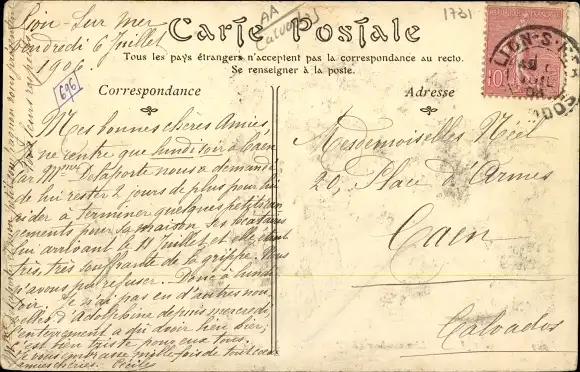 Lion-Sur Mer
Vendredi 6 Juillet
1906.
696
AA
Calvados
1731-
Carte Postale
Tous les pays étrangers n'acceptent pas la correspondance au recto.
Se renseigner à la poste.
Correspondance
Adresse
LION-S-MER
Mes bonnes chères Amies,
ne rentre que lundi soir à Caen
car Mme Delaporte nous a demandé
de lui rester 2 jours de plus pour lui
aider à terminer quelques petits ran
gements pour sa maison, ses locataires
lui arrivant le 11 juillet et elle étant
très, très souffrante de la grippe. Nous
n'avons pu refuser. Donc à lundi
soir. Je n'ai pas eu d'autres nou
velles d'Adolphine depuis mercredi,
l'enterrement a dû avoir lieu hier,
c'est bien triste pour eux tous.
Je vous embrasse mille fois de tout cœur
amies chéries. Cécile
Mesdemoiselles Néel
20, Place d'Armes
Caen
Calvados